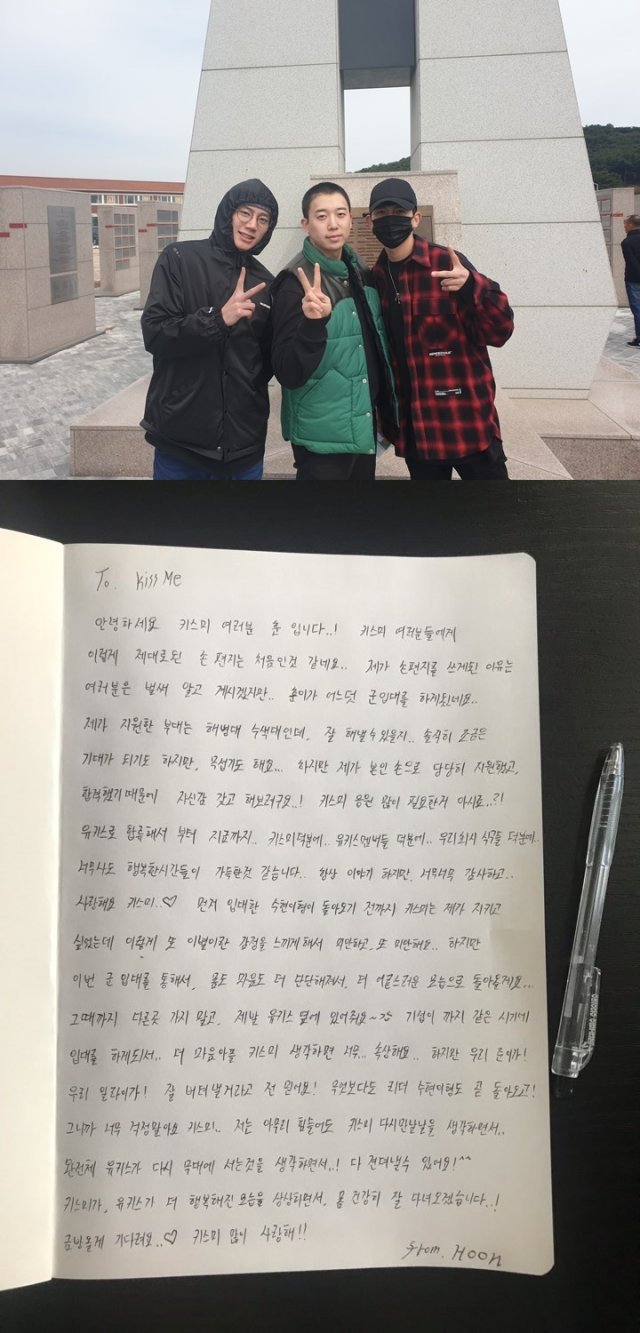 To. Kiss Me
안녕하세요 키스미 여러분 훈 입니다..! 키스미 여러분들에게
이렇게 제대로된 손 편지는 처음인것 같네요.. 제가 손편지를 쓰게된 이유는
여러분은 벌써 알고 계시겠지만.. 훈이가 어느덧 군입대를 하게됬네요..
제가 지원한 부대는 해병대 수색대인데, 잘 해낼수있을지.. 솔직히 조금은
기대가 되기도 하지만, 무섭기도 해요... 하지만 제가 본인 손으로 당당히 지원했고,
합격했기때문에 자신감 갖고 해보려구요..! 키스미 응원 많이 필요한거 아시죠..?!
유키스로 합류해서 부터 지금까지.. 키스미덕분에.. 유키스멤버들 덕분에.. 우리회사 식구들 덕분에..
너무나도 행복한시간들이 가득한것 같습니다.. 항상 이야기 하지만, 너무너무 감사하고..
사랑해요 키스미..♡ 먼저 입대한 수현이형이 돌아오기 전까지 키스미는 제가 지키고
싶었는데 이렇게 또 이별이란 감정을 느끼게해서 미안하고, 또 미안해요.. 하지만
이번 군 입대를 통해서, 몸도 마음도 더 단단해져서, 더 어른스러운 모습으로 돌아올게요...
그때까지 다른곳 가지 말고, 제발 유키스 옆에 있어줘요~ 기섭이 까지 같은 시기에
입대를 하게되서.. 더 마음아플 키스미 생각하면 너무.. 속상해요.. 하지만 우리 준이가!
우리 일라이가! 잘 버텨낼거라고 전 믿어요! 무엇보다도 리더 수현이형도 곧 돌아오고!
그니까 너무 걱정말아요 키스미.. 저는 아무리 힘들어도 키스미 다시만날날을 생각하면서..
완전체 유키스가 다시 무대에 서는것을 생각하면서..! 다 견뎌낼수 있어요!^^
키스미가, 유키스가 더 행복해진 모습을 상상하면서, 몸 건강히 잘 다녀오겠습니다..!
금방올게 기다려요..♡ 키스미 많이 사랑해!!
from. HOON